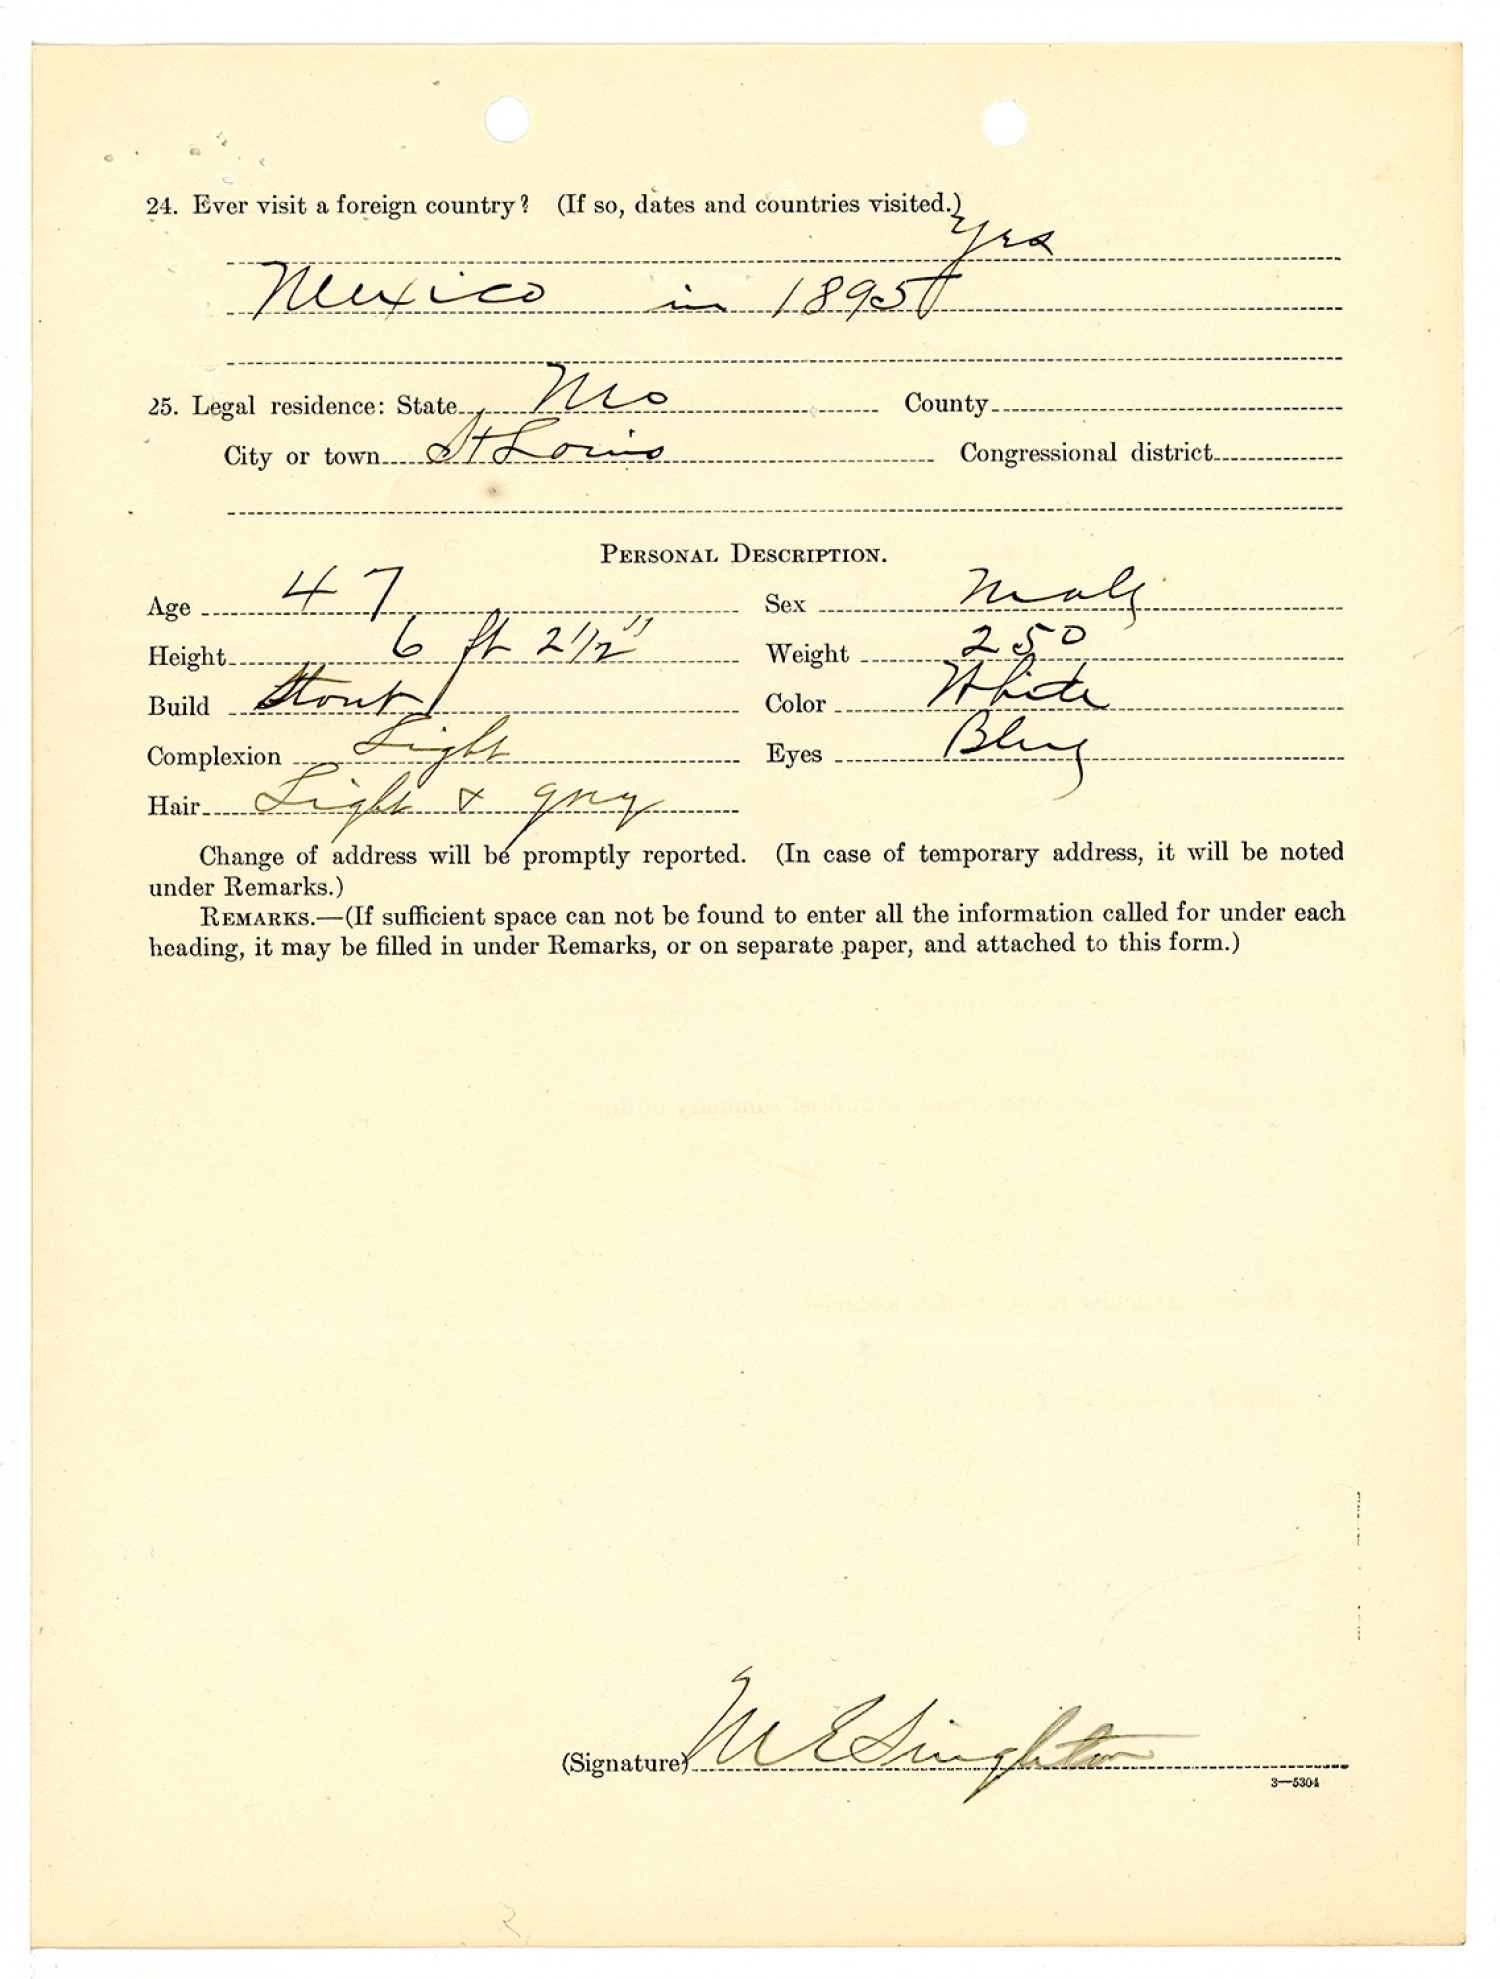 24. Ever visit a foreign country? (If so, dates and countries visited.)
Yes
Mexico in 1895
25. Legal residence: State Mo County
City or town St Louis Congressional district
PERSONAL DESCRIPTION.
Age 47 Sex Male
Height 6 ft 2 1/2" Weight 250
Build Stout Color White
Complexion Light Eyes Blue
Hair Light & grey
Change of address will be promptly reported. (In case of temporary address, it will be noted
under Remarks.)
REMARKS.—(If sufficient space can not be found to enter all the information called for under each
heading, it may be filled in under Remarks, or on separate paper, and attached to this form.)
(Signature) M E Singleton
3—5304